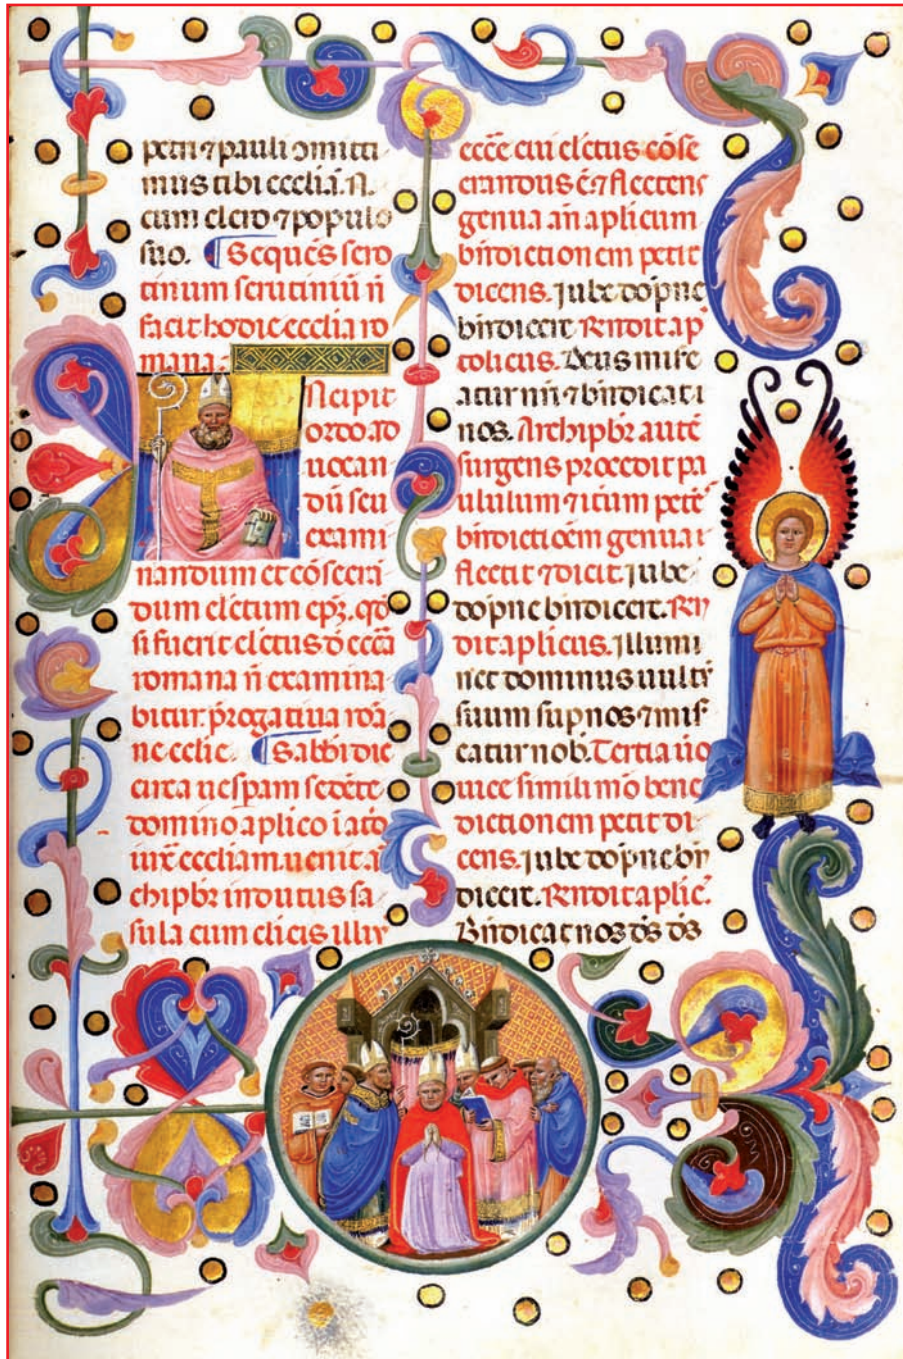 petri ⁊ pauli ꝯmitti
mus tibi eccliā. N.
cum clero ⁊ populo
suo. ¶ Sequēs sero
tinum scrutiniū n̄
facit hodie ecclia ro
mana.
Incipit
ordo ad
uocan
dū seu
exami
nandum et cōsecrā
dum elctum epz̄. qd̄
si fuerit elctus d̄ ecc̄a
romana n̄ examina
bitur. prerogatiua roā
ne ecclie. ¶ Sabbī die
circa uesꝑam sedēte
domino aplico ī atō
iuxͣ eccliam. uenit ar
chipbr indutus ca
sula cum clicis illiꝰ
ecc̄e cui elctus cōse
crandus ē. ⁊ flectens
genua añ aplicum
bn̄dictionem petit
dicens. Iube dop̄ne
bn̄dicere. Rn̄dit ap̄
tolicus. Deus mise
atur nr̄i ⁊ bn̄dicat i
nos. Archipbr autē
surgens procedit pa
ululum ⁊ itꝫum petēs
bn̄dictiōem genua i
flectit ⁊ dicit. Iube
dop̄ne bn̄dicere. Rn̄
dit aplicus. Illumi
net dominus uultū
suum suꝑ nos ⁊ mis
eatur nob̄. Tertia ūo
uice simili mō bene
dictionem petit di
cens. Iube dop̄ne bn̄
dicere. Rn̄dit aplic̄.
Bn̄dicat nos d̄s d̄s